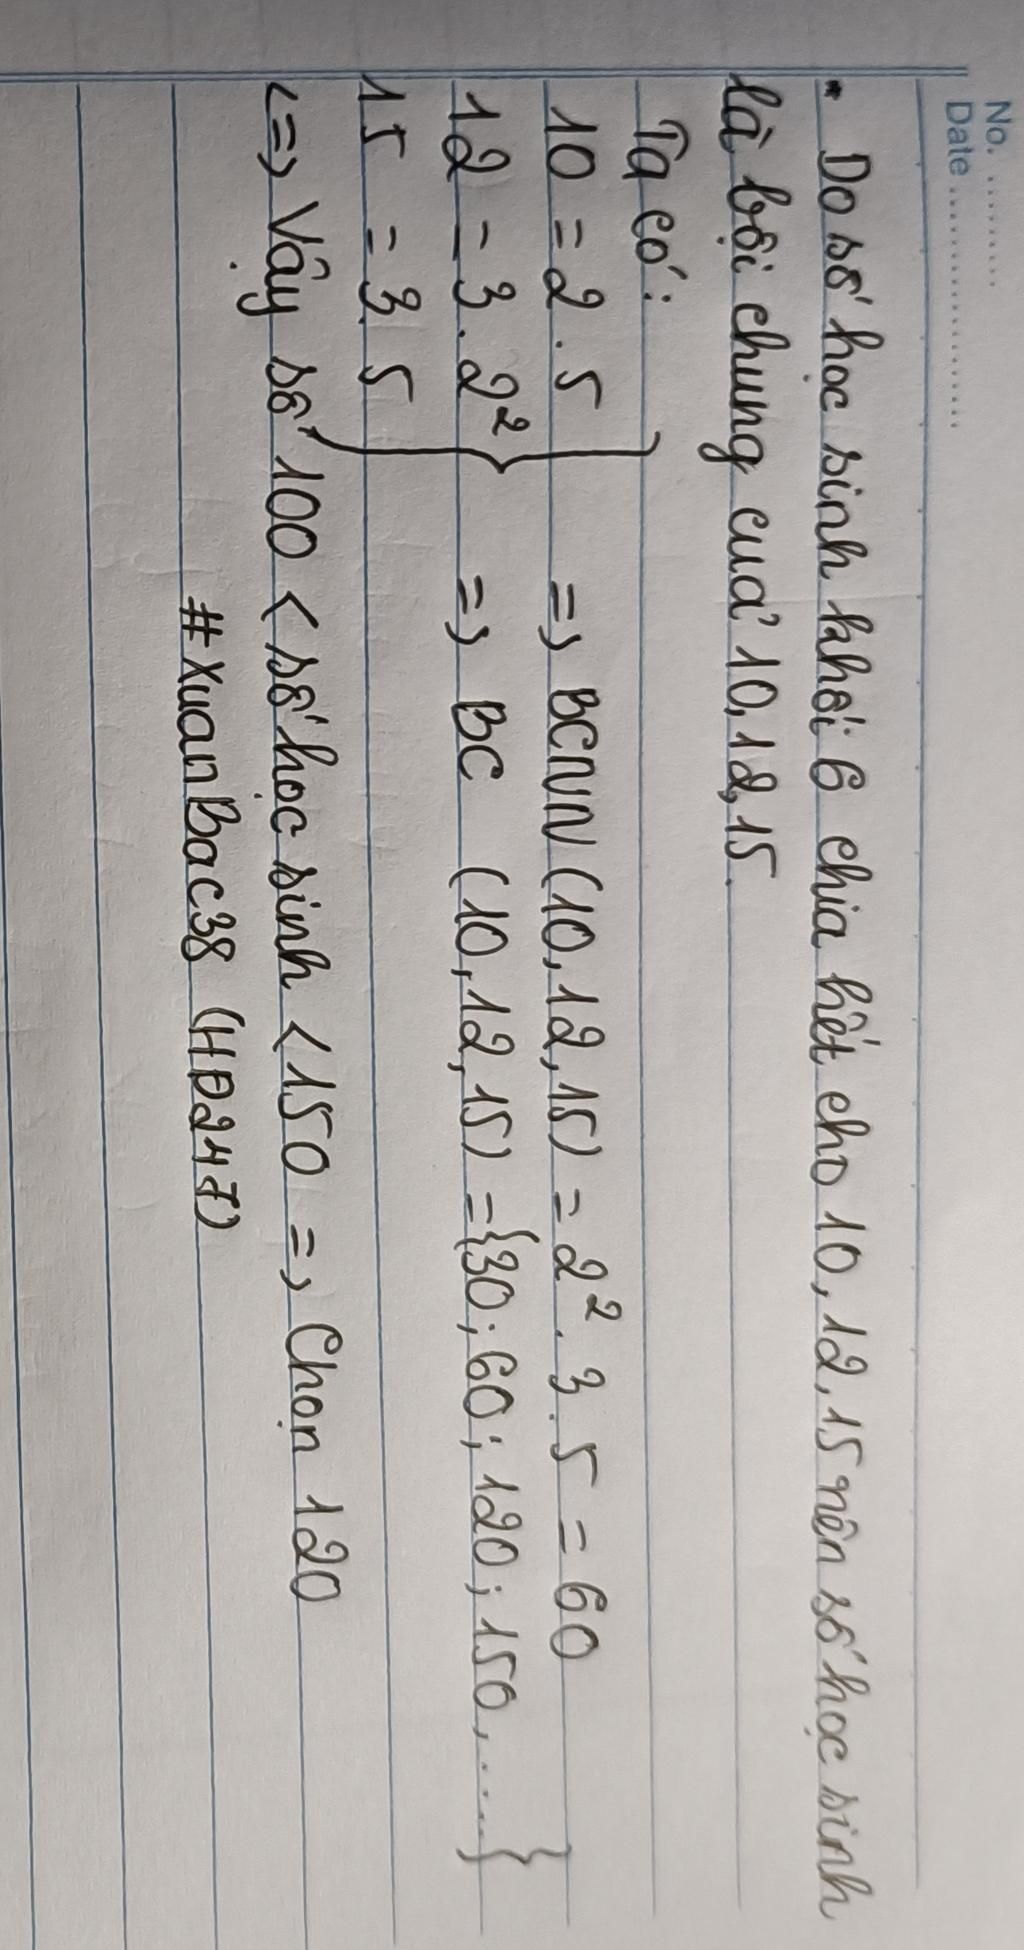 No. ............
Date ........................
• Do số học sinh khối 6 chia hết cho 10, 12, 15 nên số học sinh
là bội chung của 10, 12, 15.
Ta có:
10 = 2 . 5 => BCNN (10, 12, 15) = 2² . 3 . 5 = 60
12 = 3 . 2² } => BC (10, 12, 15) = {30; 60; 120; 150, ....}
15 = 3 . 5
<=> Vậy số 100 < số học sinh < 150 => Chọn 120
#XuanBac38 (HĐ247)